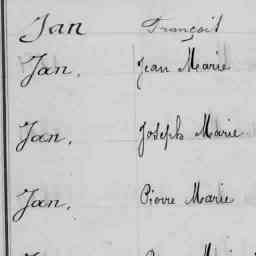 Jan François
Jan. Jean Marie
Jan. Joseph Marie
Jan. Pierre Marie
Jan.